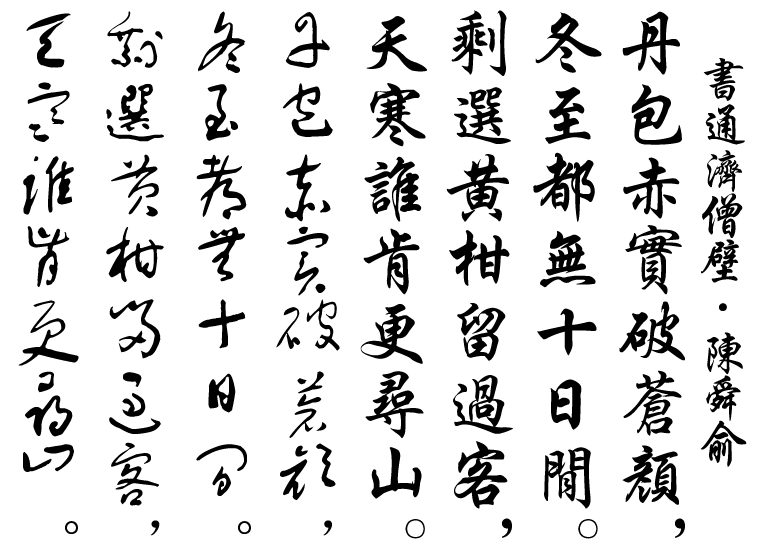 書通濟僧壁·陳舜俞
丹包赤實破蒼顏，
冬至都無十日間。
剩選黃柑留過客，
天寒誰肯更尋山。
丹包赤實破蒼顏，
冬至都無十日間。
剩選黃柑留過客，
天寒誰肯更尋山。